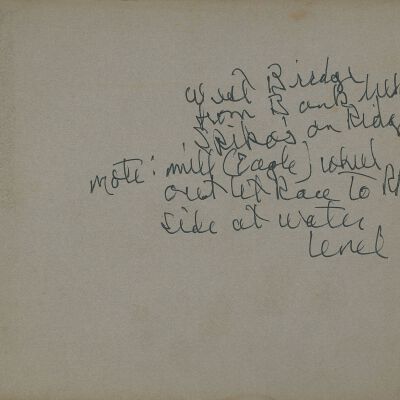 West Bridge
from Bank
on Ridge
note: mill (Eagle) wheel
out let Race to
side at water
level